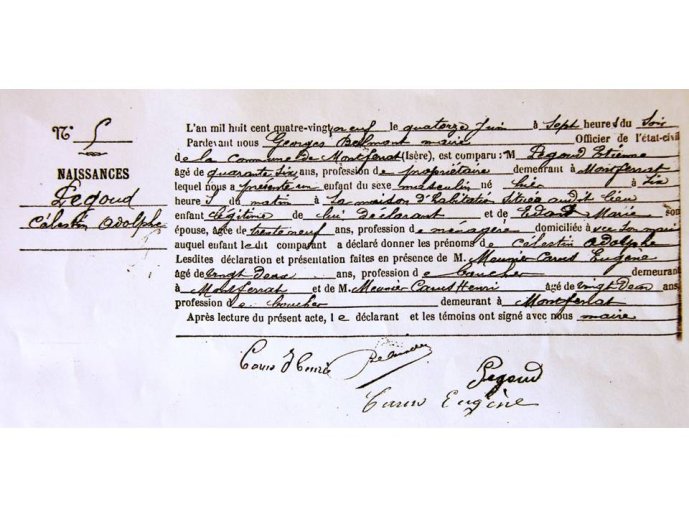 N° 5
NAISSANCES
Pegoud
Célestin Adolphe
L'an mil huit cent quatre-vingt neuf le quatorze Juin à Sept heures du Soir
Par devant nous Georges Belmont maire Officier de l'état-civil
de la Commune de Montferrat (Isère), est comparu: M Pegoud Etienne
âgé de quarante Six ans, profession de propriétaire demeurant à Montferrat
lequel nous a présenté un enfant du sexe masculin né hier à Six
heures du matin à la maison d'habitation Située audit lieu
enfant légitime de lui déclarant et de Marie son
épouse, âgée de trente neuf ans, profession de ménagère domiciliée à vec Son mari
auquel enfant ledit comparant a déclaré donner les prénoms de Célestin Adolphe
Lesdites déclaration et présentation faites en présence de M. Meunier Carus Eugène
âgé de vingt deux ans, profession de boucher demeurant
à Montferrat et de M. Meunier Carus Henri âgé de vingt Deux ans,
profession de boucher demeurant à Montferrat
Après lecture du présent acte, le déclarant et les témoins ont signé avec nous maire
Pegoud
Carus Eugène